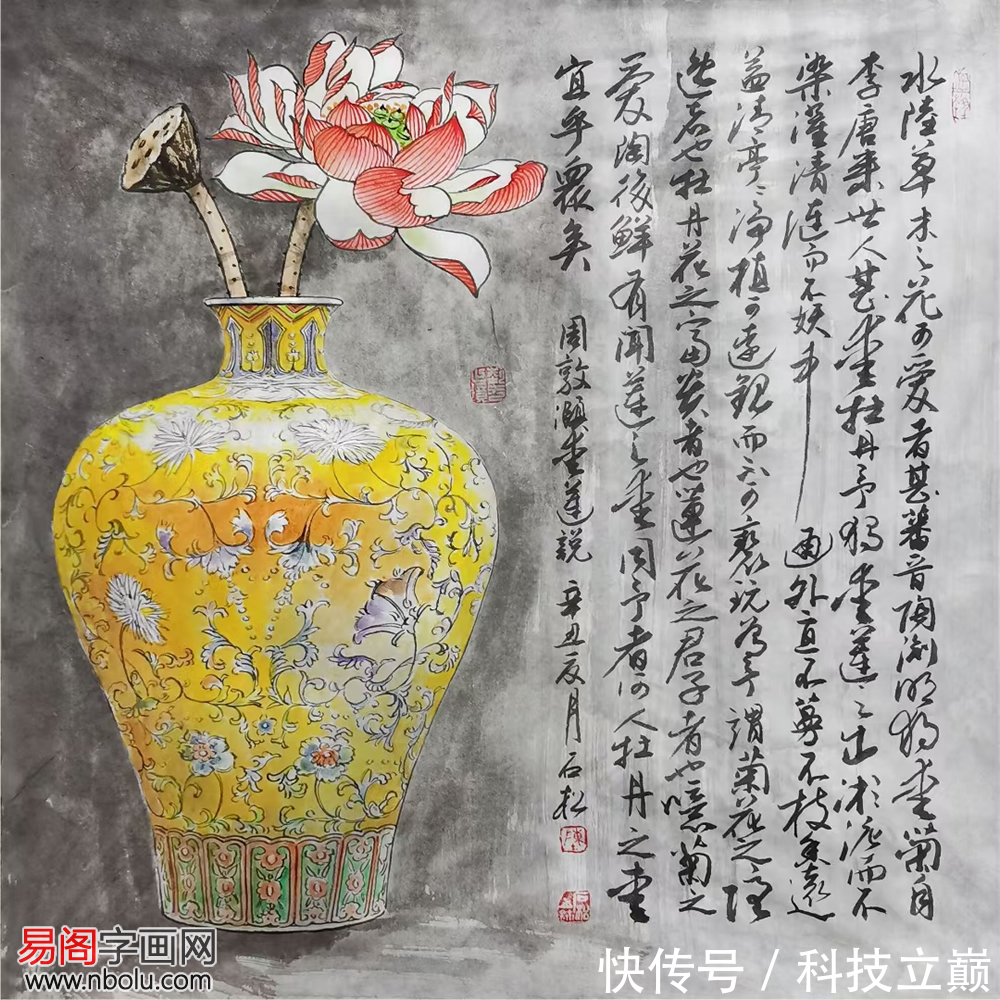 水陸草木之花可愛者甚蕃晋陶渊明独爱菊自
李唐来世人甚爱牡丹予独爱蓮之出淤泥而不
染濯清涟而不妖中通外直不蔓不枝香遠
益清亭亭净植可遠観而不可亵玩焉予謂菊花之隐
逸者也牡丹花之富貴者也蓮花之君子者也噫菊之
爱陶後鮮有聞蓮之爱同予者何人牡丹之爱
宜乎衆矣 周敦頤爱蓮説 辛丑夏月石松
易阁字画网
www.nbolu.com
快传号 / 科技立巅